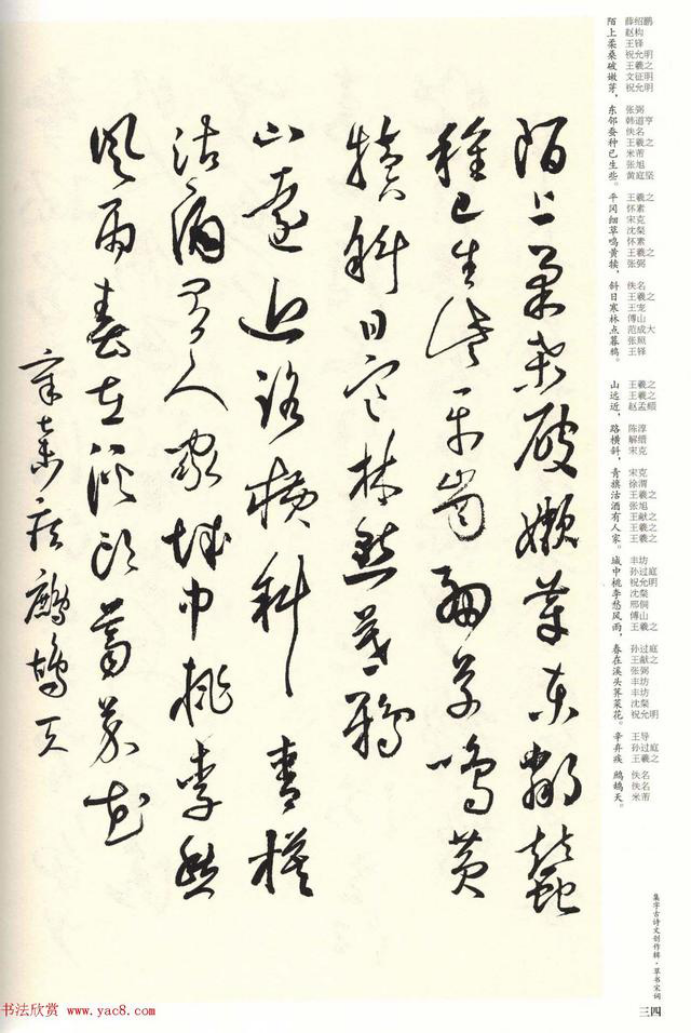 陌上柔桑破嫩芽東鄰蠶
種已生些平岡細草鳴黃
犢斜日寒林點暮鴉
山遠近路橫斜青旗
沽酒有人家城中桃李愁
風雨春在溪頭薺菜花
辛棄疾鷓鴣天
陌 薛绍鹏
上 赵构
柔 王铎
桑 祝允明
破 王羲之
嫩 文征明
芽， 祝允明
东 张弼
邻 韩道亨
蚕 佚名
种 王羲之
已 米芾
生 张旭
些。 黄庭坚
平 王羲之
冈 怀素
细 宋克
草 沈粲
鸣 怀素
黄 王羲之
犊， 张弼
斜 佚名
日 王羲之
寒 王宠
林 傅山
点 范成大
暮 张照
鸦。 王铎
山 王羲之
远 王羲之
近， 赵孟頫
路 陈淳
横 解缙
斜， 宋克
青 宋克
旗 徐渭
沽 王羲之
酒 张旭
有 王献之
人 王羲之
家。 王羲之
城 丰坊
中 孙过庭
桃 祝允明
李 沈粲
愁 邢侗
风 傅山
雨， 王羲之
春 孙过庭
在 王献之
溪 张弼
头 丰坊
荠 丰坊
菜 沈粲
花。 祝允明
辛 王导
弃 孙过庭
疾 王羲之
鹧 佚名
鸪 佚名
天。 米芾
集字古诗文创作辑·草书宋词
三四
书法欣赏 www.yac8.com